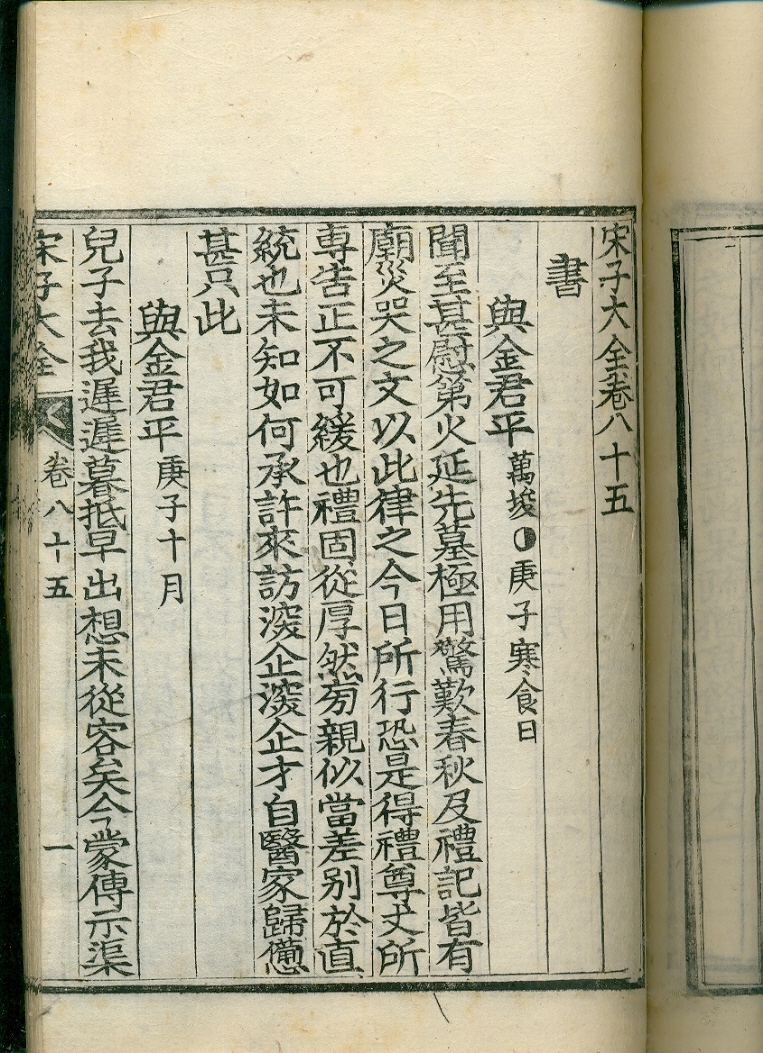 宋子大全卷八十五
書
與金君平萬埈◐庚子寒食日
聞至甚慰第火延先墓極用驚歎春秋及禮記皆有
廟災哭之文以此律之今日所行恐是得禮尊丈所
専告正不可緩也禮固從厚然旁親似當差別於直
統也未知如何承許來訪深企深企才自醫家歸憊
甚只此
與金君平庚子十月
兒子去我遲遲暮抵早出想未從容矣今蒙傳示渠
宋子大全 卷八十五 一